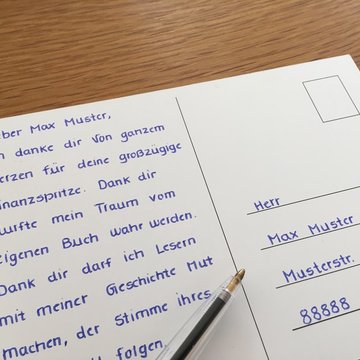 ber Max Muster,
danke dir von ganzem
erzen für deine großzügige
inanzspritze. Dank dir
urfte mein Traum vom
eigenen Buch wahr werden.
Dank dir darf ich Lesern
mit meiner Geschichte Mut
machen, der Stimme ihres
folgen.
Herr
Max Muster
Musterstr.
88888